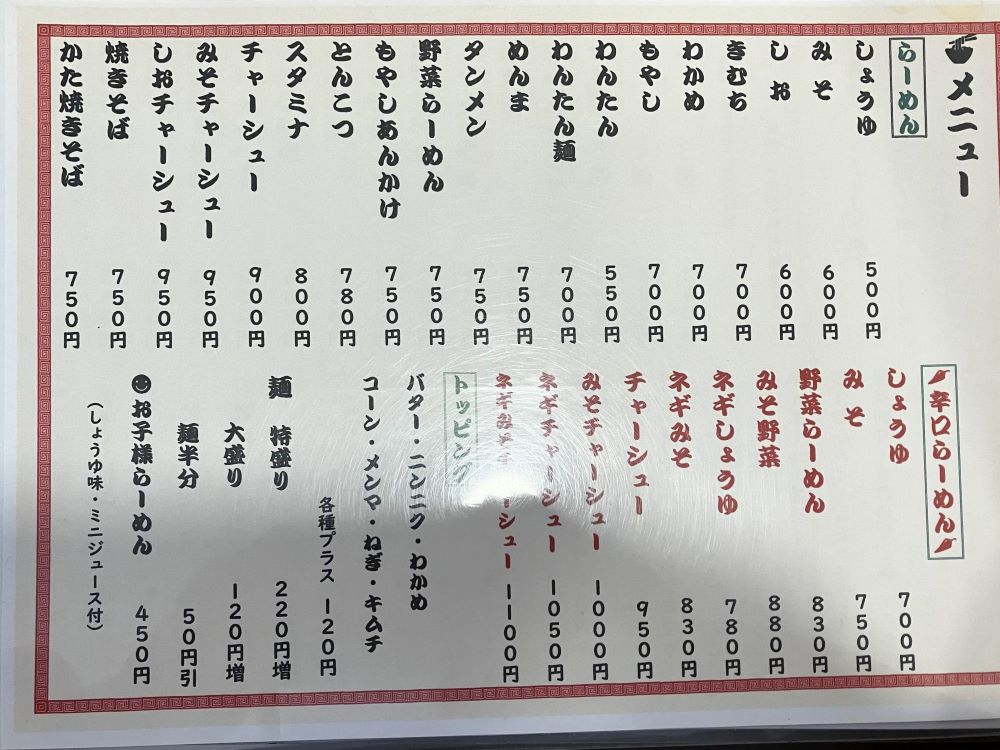 メニュー
らーめん
しょうゆ 500円
みそ 600円
しお 600円
きむち 700円
わかめ 700円
もやし 700円
わんたん 550円
わんたん麺 700円
めんま 750円
タンメン 750円
野菜らーめん 750円
もやしあんかけ 750円
とんこつ 780円
スタミナ 800円
チャーシュー 900円
みそチャーシュー 950円
しおチャーシュー 950円
焼きそば 750円
かた焼きそば 750円
辛口らーめん
しょうゆ 700円
みそ 750円
野菜らーめん 830円
みそ野菜 880円
ネギしょうゆ 780円
ネギみそ 830円
チャーシュー 950円
みそチャーシュー 1000円
ネギチャーシュー 1050円
ネギみそチャーシュー 1100円
トッピング
バター・ニンニク・わかめ
コーン・メンマ・ねぎ・キムチ
各種プラス 120円
麺 特盛り 220円増
大盛り 120円増
麺半分 50円引
お子様らーめん 450円
(しょうゆ味・ミニジュース付)